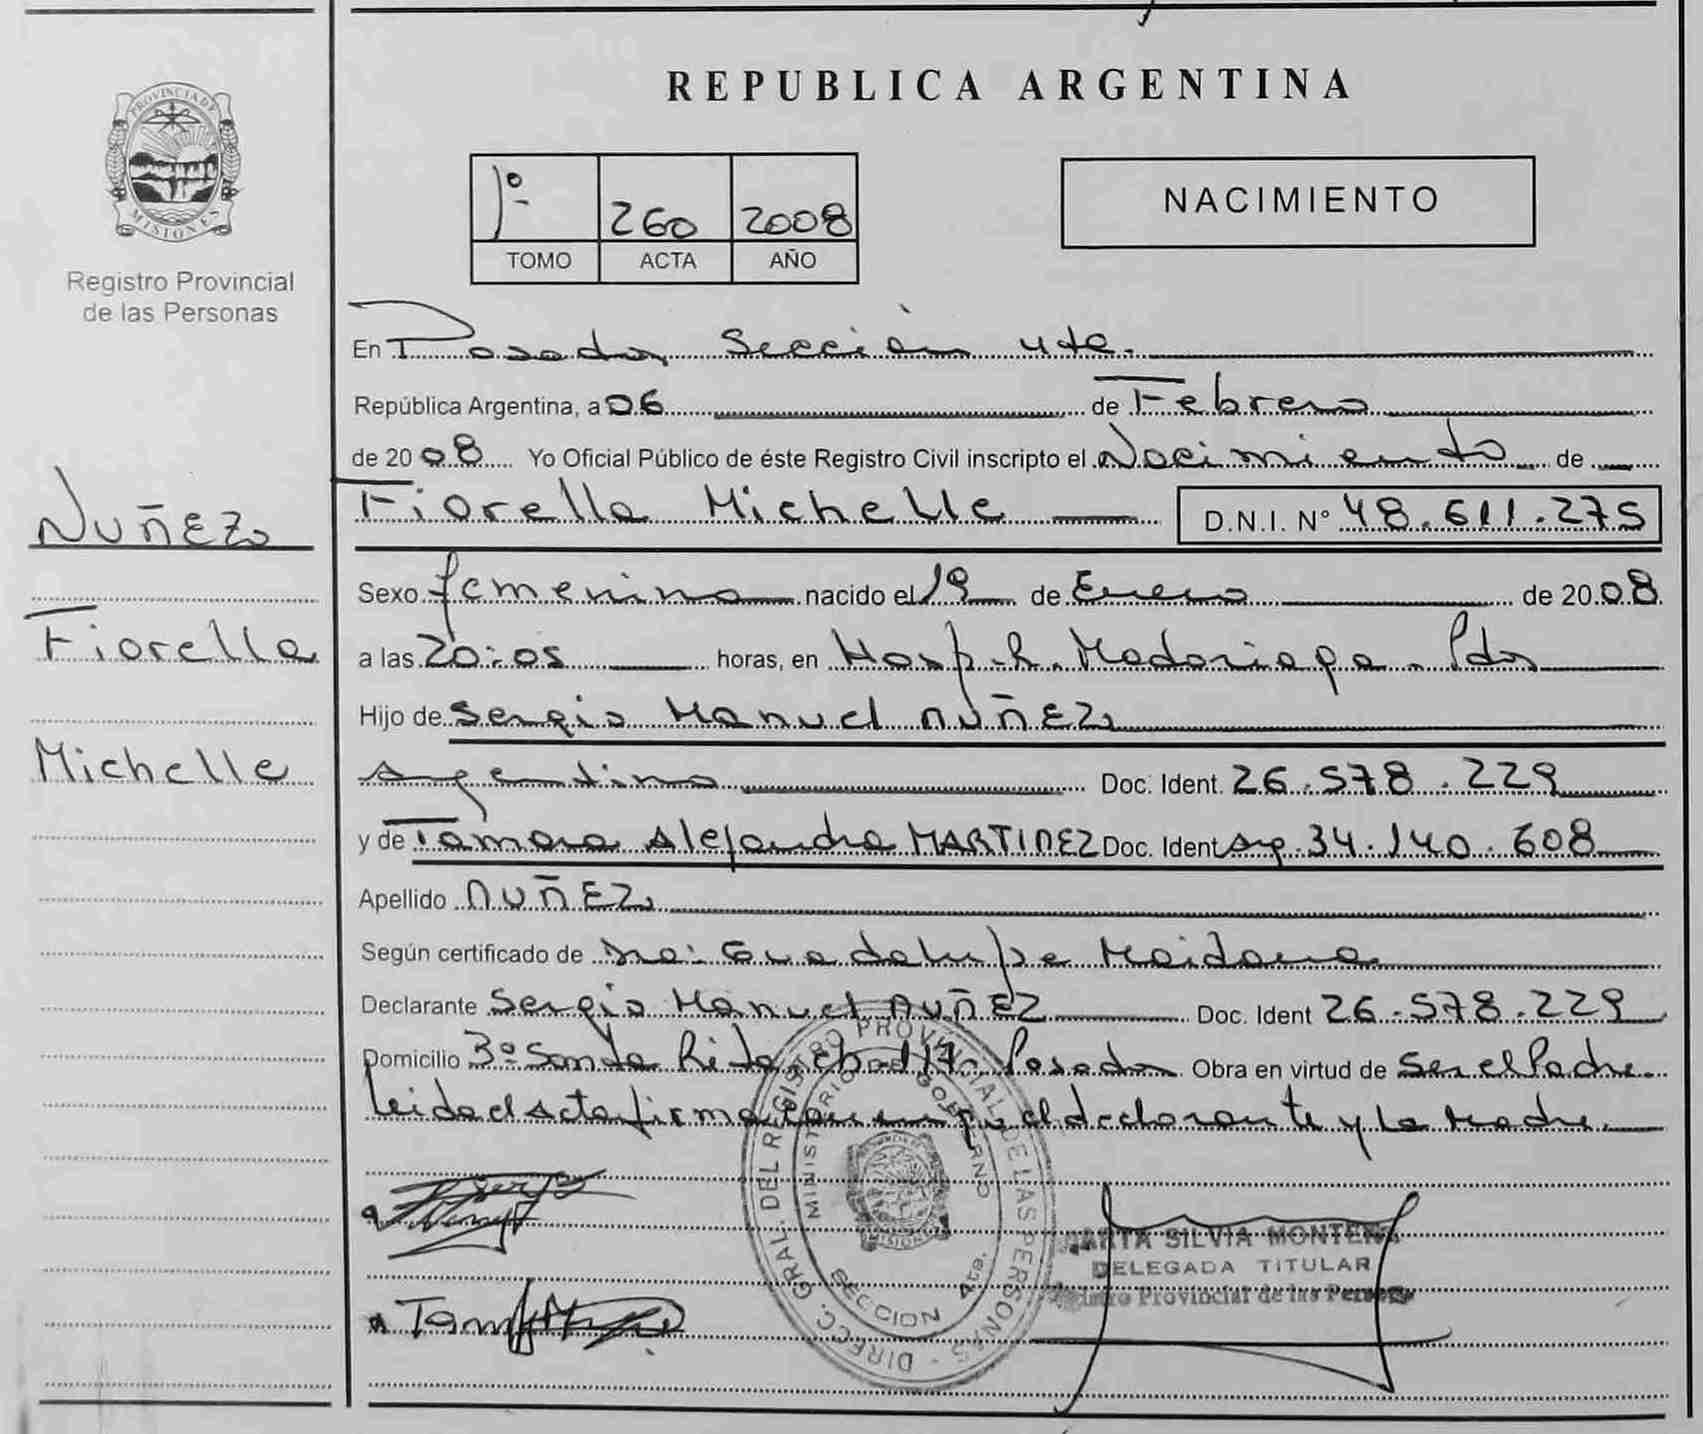 REPUBLICA ARGENTINA
PROVINCIA DE
MISIONES
Registro Provincial
de las Personas
1º 260 2008
TOMO ACTA AÑO
NACIMIENTO
En Posadas Sección 4ta.
República Argentina, a 06 de Febrero
de 2008 Yo Oficial Público de éste Registro Civil inscripto el Nacimiento de
Fiorella Michelle D.N.I. Nº 48.611.275
NUÑEZ
Fiorella
Michelle
Sexo femenino nacido el 19 de Enero de 2008
a las 20:05 horas, en Hosp. R. Madariaga - Pdas
Hijo de Sergio Manuel NUÑEZ
Argentino Doc. Ident. 26.578.229
y de Tamara Alejandra MARTINEZ Doc. Ident Arg. 34.140.608
Apellido NUÑEZ
Según certificado de Guadalupe Maidana
Declarante Sergio Manuel NUÑEZ Doc. Ident 26.578.229
Domicilio 3º Santa Rita ch 117 - Posadas Obra en virtud de Ser el Padre
leida el Acta firma con migo el declarante y la Madre.
DIRECC. GRAL. DEL REGISTRO PROVINCIAL DE LAS PERSONAS
MINISTERIO GOBIERNO
MISIONES
SECCION 4ta.
SILVIA
DELEGADA TITULAR
Provincial de las Personas